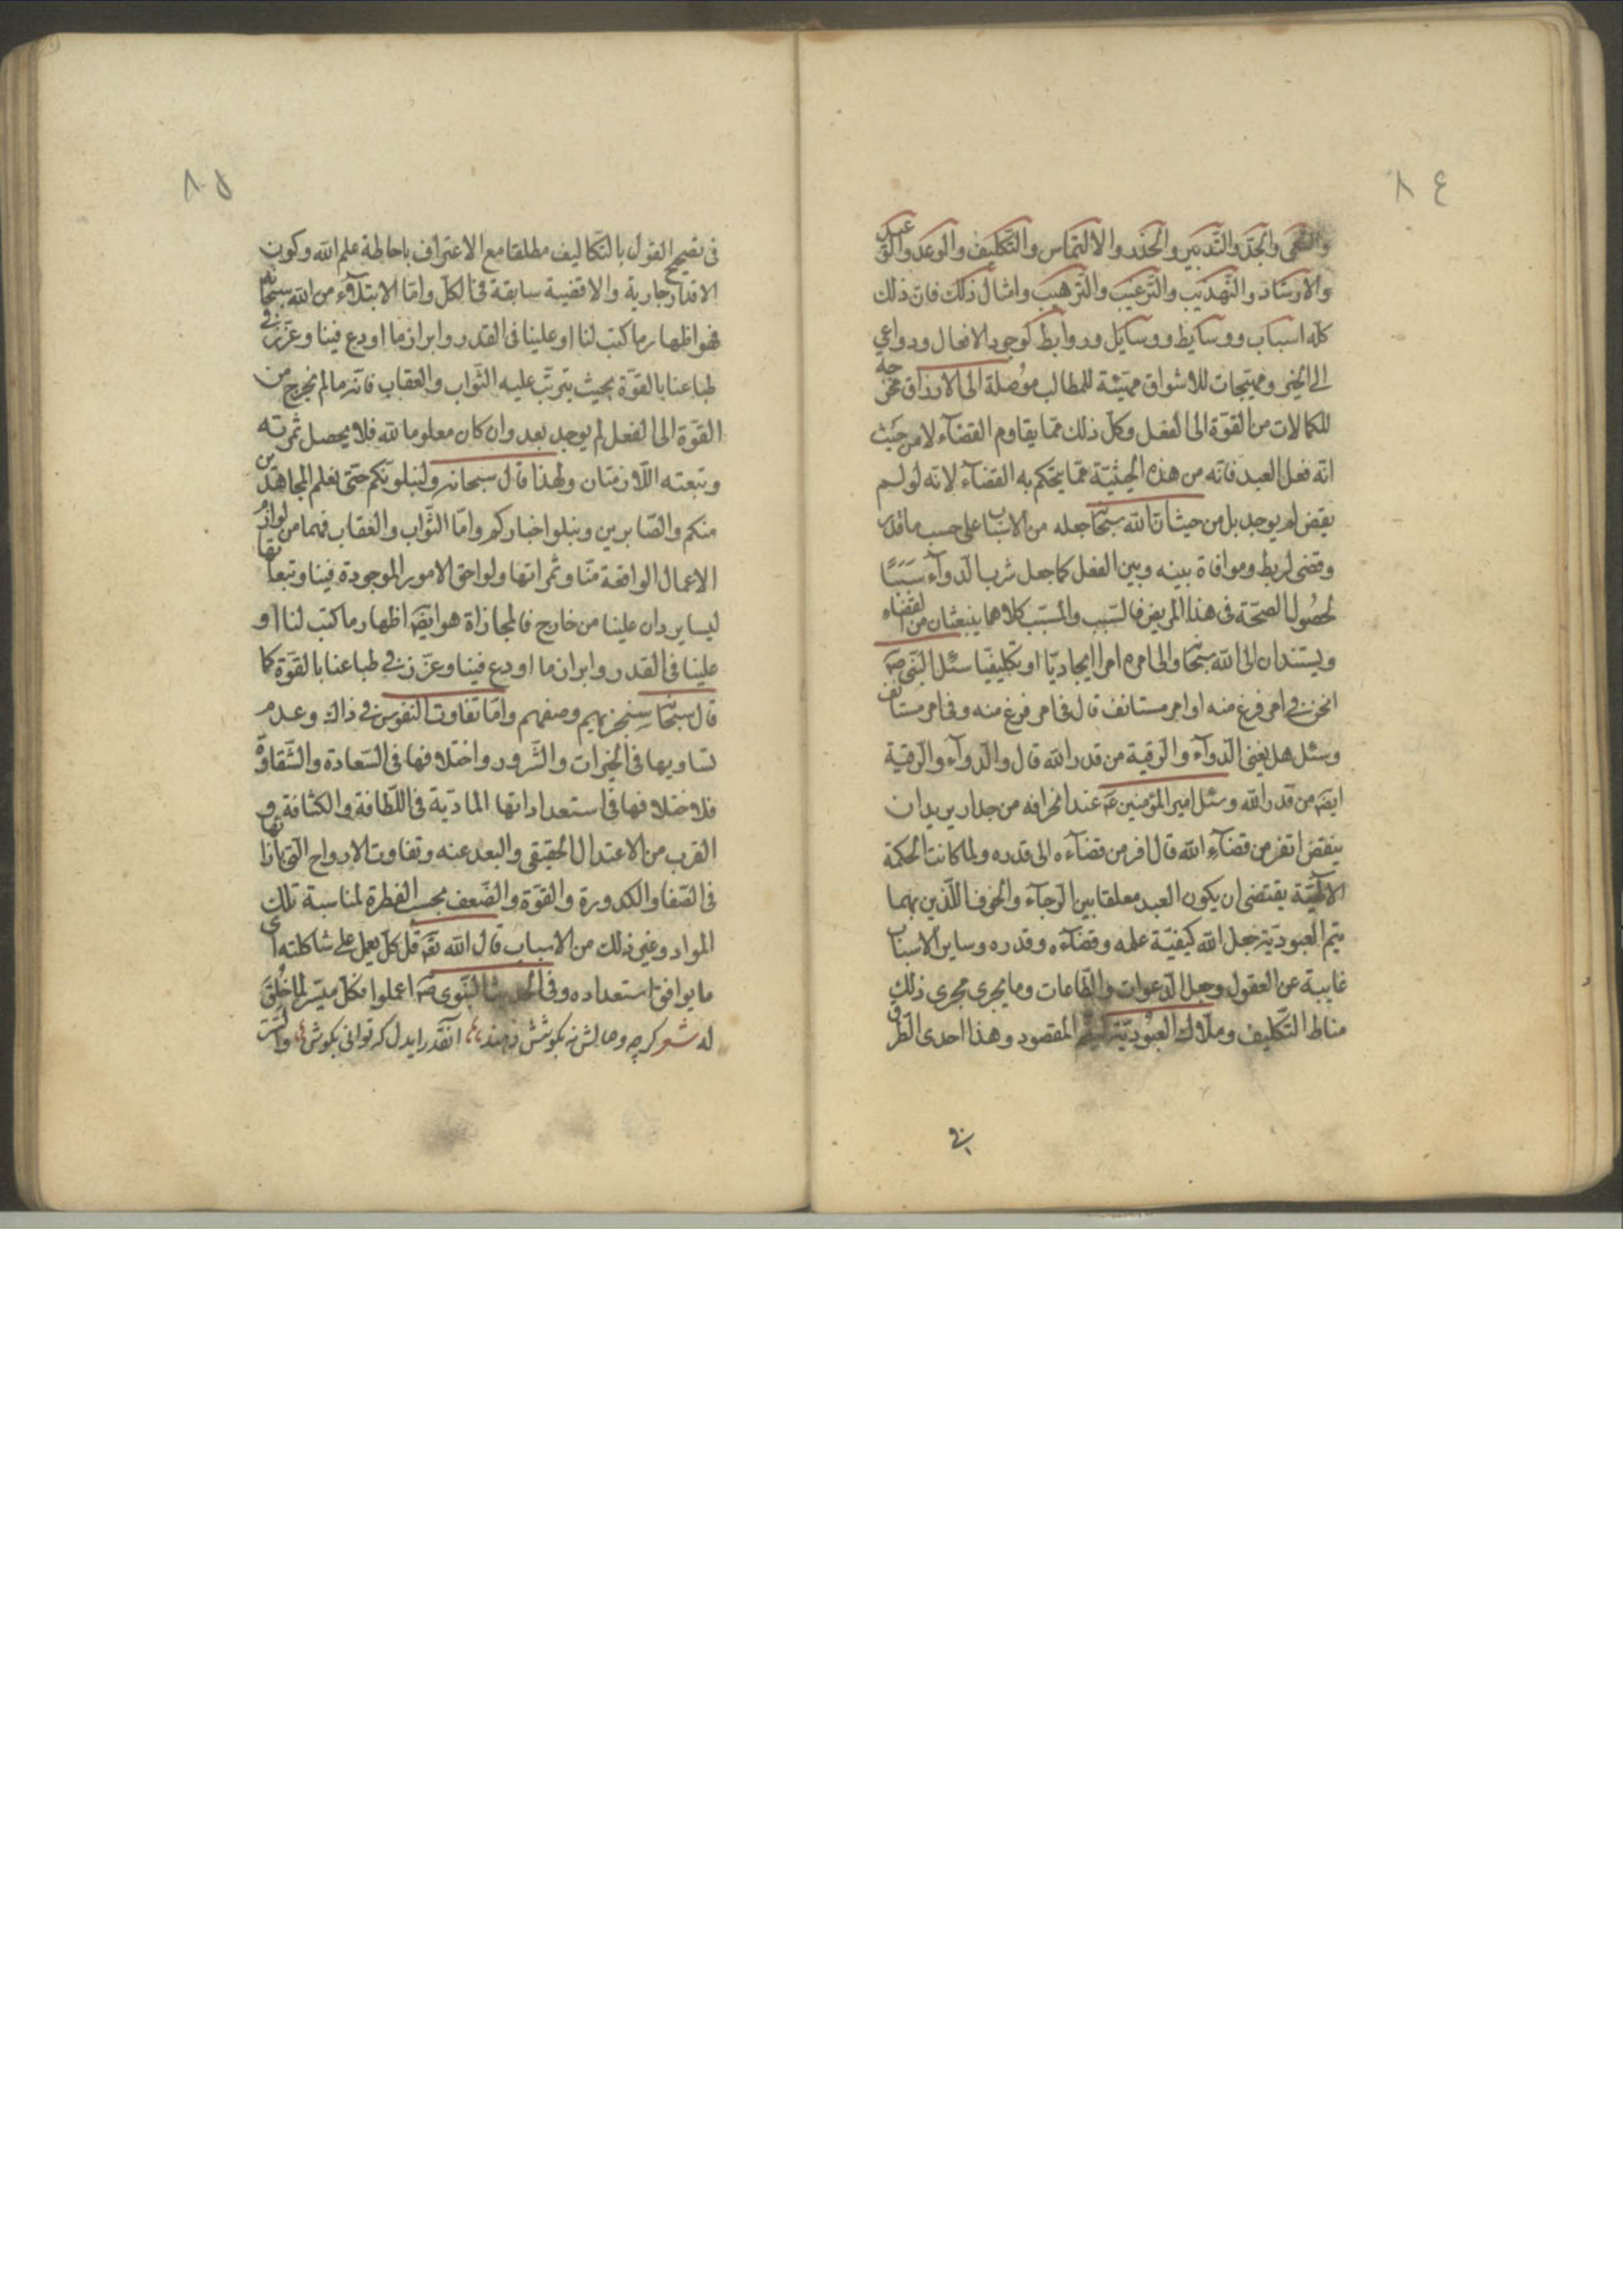 ٨٤
والسعى والجدّ والتّدبير والحذر والالتماس والتّكليف والوعد والوعيد
والارشاد والتّهذيب والتّرغيب والتّرهيب وامثال ذلك فانّ ذلك
كلّه اسباب ووسايط ووسايل وروابط لوجود الافعال ودواعي
الى الخير ومهيّجات للاشواق مهيّئة للمطالب موُصلة الى الارزاق مخرجة
للكمالات من القوّة الى الفعل وكلّ ذلك ممّا يقاوم القضآء لا من حيث
انّه فعل العبد فانّه من هذه الحيثيّة ممّا يتحكم به القضآء لانّه لو لم
يقض لم يوجد بل من حيث انّ الله سبحٰا جعله من الاسباب على حسب ما قدّر
وقضى لربط وموافاة بينه وبين الفعل كما جعل شرب الدّوآء سَبَبًا
لحصُول الصحّة فى هذا المريض فالسّبب والمسبّب كلاهما ينبعثان من القضاء
ويستندان الى الله سبحٰا والى امره امرا ايجاديّا او تكليفيّا سئل النّبى صه
انحن في امر فرغ منه او امر مستانف قال فى امر فرغ منه وفى امر مستانف
وسئل هل يغنى الدّوآء والرّقية من قدر الله قال والدّوآء والرّقية
ايضه من قدر الله وسئل امير المؤمنين عه عند انحرافه من جدار يريد ان
ينقض اتفر من قضآء الله قال افر من قضآءه الى قدره ولما كانت الحكمة
الالهيّة يقتضى ان يكون العبد معلقا بين الرّجآء والخوف اللّذين بهما
يتم العبوديّة جعل الله كيفيّة علمه وقضآءه وقدره وساير الاسباب
غايبة عن العقول وجعل الدّعوات والطّاعات وما يجرى مجرى ذلك
مناط التّكليف وملاك العبُوديّة ليتم المقصود وهذا احدى الطّرق
فى
٨٥
فى تصحيح القول بالتّكاليف مطلقا مع الاعتراف باحاطة علم الله وكون
الاقدار جارية والاقضية سابقة فى الكلّ وامّا الابتلآء من الله سبحٰانه
فهو اظهار ما كتب لنا او علينا فى القدر وابراز ما اودع فينا وعزّز في
طباعنا بالقوّة بحيث يترتّب عليه الثّواب والعقاب فانّه ما لم يخرج من
القوّة الى الفعل لم يوجد بعد وان كان معلوما لله فلا يحصل ثمرته
وتبعته اللّازمتان ولهذا قال سبحانه ولنبلونّكم حتّى نعلم المجاهدين
منكم والصّابرين ونبلوا اخباركم وامّا الثّواب والعقاب فهما من لوازم
الاعمال الواقعة منّا وثمراتها ولواحق الامور الموجودة فينا وتبعاتها
ليسا يردان علينا من خارج فالمجازاة هو ايضه اظهار ما كتب لنا او
علينا فى القدر وابراز ما اودع فينا وعزّز في طباعنا بالقوّة كما
قال سبحٰا سيجزيهم وصفهم وامّا تفاوت النّفوس في ذلك وعدم
تساويها فى الخيرات والشّرور واختلافها فى السّعادة والشّقاوة
فلاختلافها فى استعداداتها المادّية فى اللّطافة والكثافة و
القرب من الاعتدال الحقيقى والبعد عنه وتفاوت الارواح الّتى بازائها
فى الصّفا والكدورة والقوّة والضّعف بحسب الفطرة لمناسبة تلك
المواد وغير ذلك من الاسباب قال الله تعه قل كلّ يعمل على شاكلته اى
ما يوافق استعداده وفى الحديث النّبوى صه اعملوا فكلّ ميسّر لما خُلق
له شعر گرچه وصالش نه بكوشش دهند آنقدر ايدل كه توانى بكوش والسّر